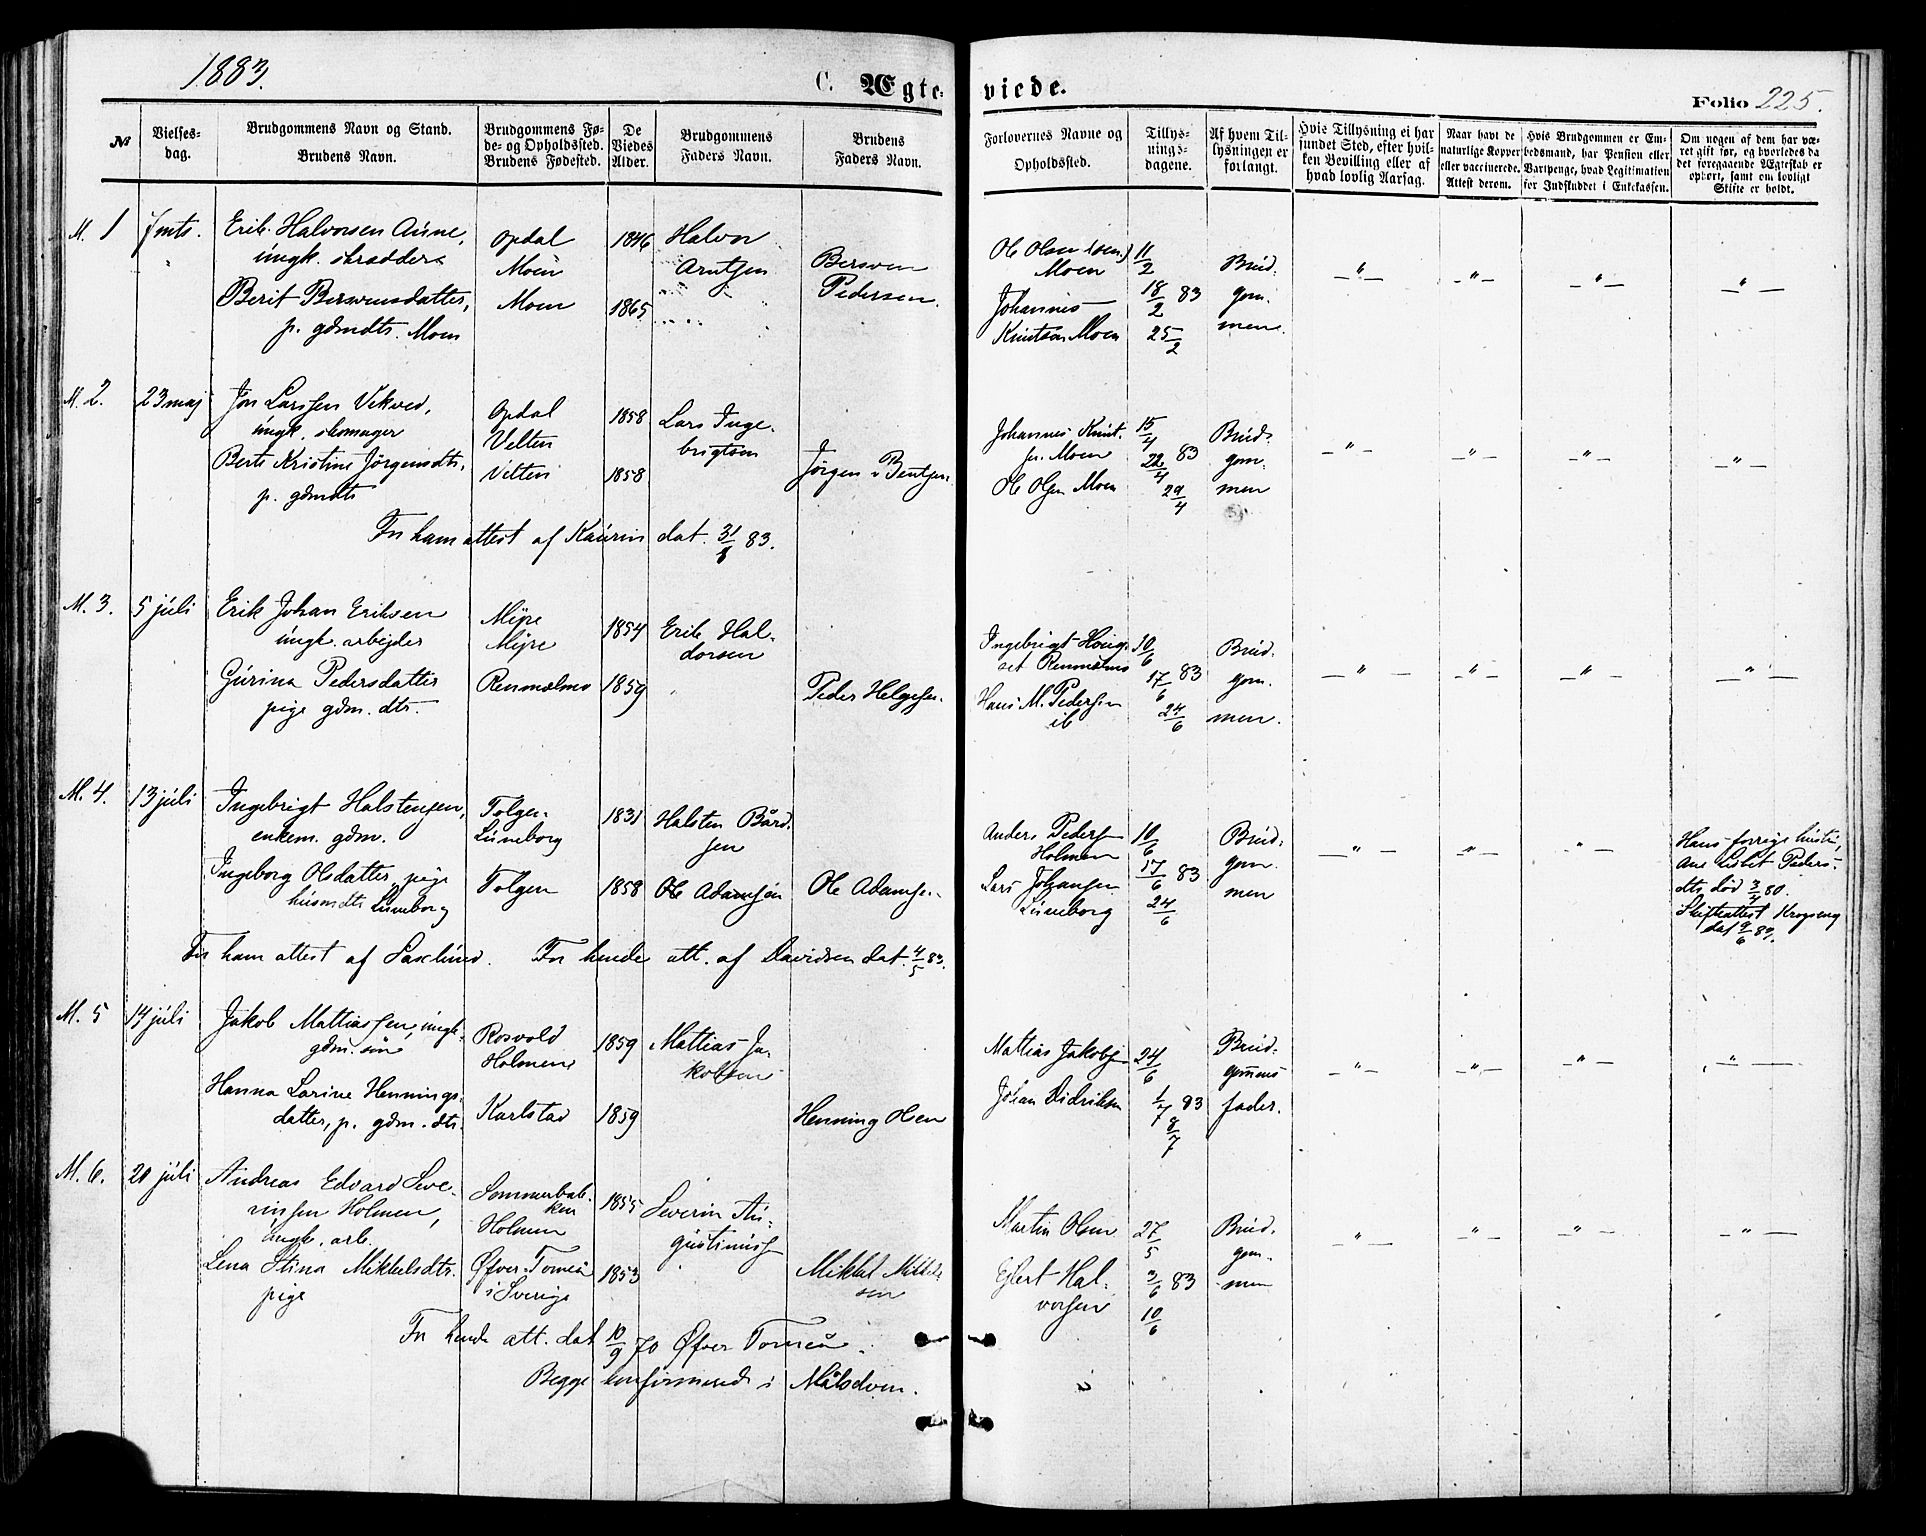 1883.
C. Ægteviede.
Folio 225.
№
Vielsesdag.
Brudgommens Navn og Stand.
Brudens Navn.
Brudgommens Føde- og Opholdssted.
Brudens Fødested.
De Viedes Alder.
Brudgommens Faders Navn.
Brudens Faders Navn.
Forlovernes Navne og Opholdssted.
Tillysningsdagene.
Af hvem Tillysningen er forlangt.
Hvis Tillysning ei har fundet Sted, efter hvilken Bevilling eller af hvad lovlig Aarsag.
Naar havt de naturlige Kopper eller vaccinerede. Attest derom.
Hvis Brudgommen er Embedsmand, har Pension eller Vartpenge, hvad Legitimation for Indskuddet i Enkekassen.
Om nogen af dem har været gift før, og hvorledes da det foregaaende Ægteskab er ophørt, samt om lovligt Skifte er holdt.
M. 1
7 mts.
Erik Halvorsen Aune,
ungk. skrædder
Berit Bersvensdatter,
p. gdmdtr. Moen
Opdal
Moen
Moen
1846
1865
Halvor
Arntsen
Bersven
Pedersen.
Ole Olsen (sen.)
Moen
Johannes
Knutsen Moen
11/2
18/2 83
25/2
Brud-
gom-
men.
M. 2.
23 maj
Jon Larssen Vekved,
ungk. skomager
Berte Kristine Jørgensdtr.
p. gdmdtr
Opdal
Velten
Velten
1858
1858
Lars Inge-
brigtsen
Jørgen Bentsen
Johannes Knut-
sen Moen
Ole Olsen Moen
15/4
22/4 83
29/4
Brud-
gom-
men
For ham attest af Kaurin dat. 31/1 83.
M. 3.
5 juli
Erik Johan Eriksen
ungk. arbejder
Gurina Pedersdatter
pige gdm. dtr.
Myre
Myre
Renmælmo
1854
1859
Erik Hal-
dorsen
Peder Helgesen.
Ingebrigt Høug-
set Renmælmo
Hans M. Pedersen
ib
10/6
17/6 83
24/6
Brud-
gom-
men.
M. 4.
13 juli
Ingebrigt Halstensen,
enkem. gdm.
Ingeborg Olsdatter, pige
husmdtr Luneborg
Tolgen
Luneborg
Tolgen
1831
1858
Halsten Bård-
sen
Ole Adamsen
Ole Adamsen
Anders Pedersen
Holmen
Lars Johansen
Luneborg
10/6
17/6 83
24/6
Brud-
gom-
men
Hans forrige hustru,
Ane Lisbet Peders-
dtr, død 3/4 80.
Skifteattest Krogseng
dat 9/6 83.
For ham attest af Saxlund. For hende att. af Davidsen dat. 4/5 83.
M. 5
14 juli
Jakob Mattiassen, ungk.
gdm. søn
Hanna Larine Hennings-
datter, p. gdm. dtr.
Rosvold
Holmen
Karlstad
1859
1859
Mattias Ja-
kobsen
Henning Olsen
Mattias Jakobsen
Johan Didriksen
24/6
1/7 83
8/7
Brud-
gommens
fader.
M. 6.
20 juli
Andreas Edvard Seve-
rinsen Holmen,
ungk. arb.
Lena Stina Mikkelsdtr.
pige
Sommerbak-
ken
Holmen
Øfver Torneå
i Sverige
1855
1853
Severin Au-
gustinusen
Mikkel Mikkel-
sen
Martin Olsen
Ejlert Hal-
vorsen
27/5
3/6 83
10/6
Brud-
gom-
men
For hende att. dat 10/9 70 Øfver Torneå.
Begge konfirmerede i Målselven.